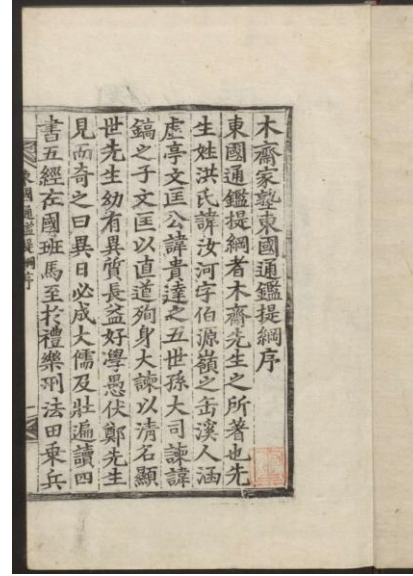 木齋家塾東國通鑑提綱序
東國通鑑提綱者木齋先生之所著也先
生姓洪氏諱汝河字伯源嶺之缶溪人涵
虛亭文匡公諱貴達之五世孫大司諫諱
鎬之子文匡以直道殉身大諫以清名顯
世先生幼有異質長益好學愚伏鄭先生
見而奇之曰異日必成大儒及壯遍讀四
書五經左國班馬至於禮樂刑法田乘兵
東國通鑑提綱序